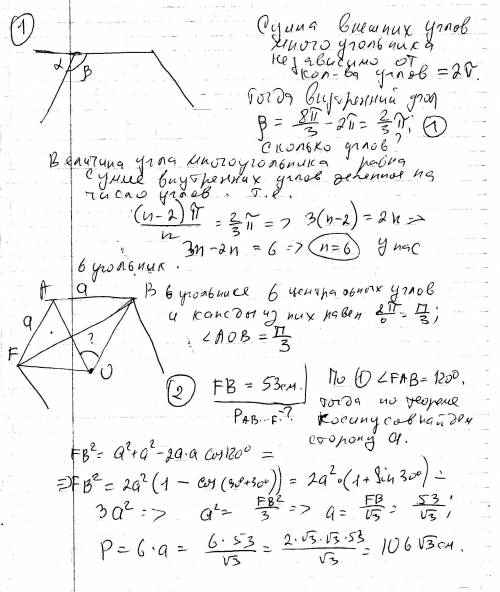 1
Сумма внешних углов
многоугольника
независимо от
кол-ва углов = 2π.
α β
Тогда внутренний угол
β = 8π/3 - 2π = 2/3 π; 1
Сколько углов?
Величина угла многоугольника равна
сумме внутренних углов деленное на
число углов. т.е.
(n-2)π/n = 2/3 π => 3(n-2) = 2n =>
3n - 2n = 6 => n=6 У нас
6 угольник.
A a B
a
F ? O
В 6 угольнике 6 центральных углов
и каждый из них равен 2π/6 = π/3;
∠AOB = π/3
2 FB = 53 см.
P AB...F - ?
По 1 ∠FAB = 120°,
тогда по теореме
косинусов найдем
сторону a.
FB² = a² + a² - 2a·a cos120° =
=> FB² = 2a²(1 - cos(90°+30°)) = 2a²·(1 + Sin 30°) =
3a² => a² = FB²/3 => a = FB/√3 = 53/√3;
P = 6·a = 6·53/√3 = 2·√3·√3·53/√3 = 106√3 см.